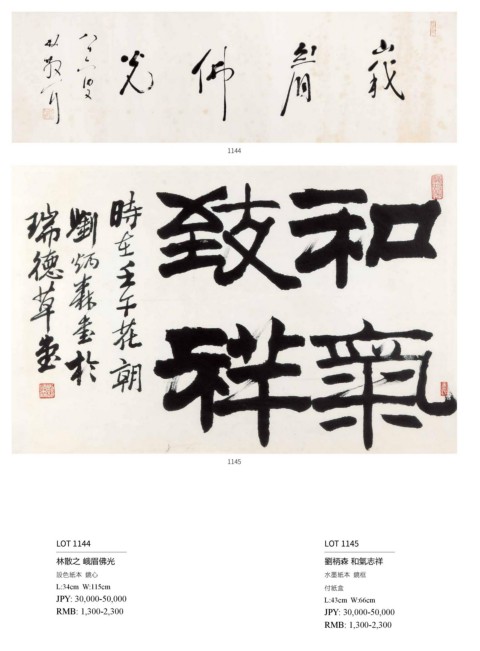 峨眉佛光
八十六叟
林散耳
1144
和氣
致祥
時在壬午花朝
劉炳森書於
瑞德草堂
1145
LOT 1144
林散之 峨眉佛光
設色紙本 鏡心
L:34cm W:115cm
JPY: 30,000-50,000
RMB: 1,300-2,300
LOT 1145
劉柄森 和氣志祥
水墨紙本 鏡框
付紙盒
L:43cm W:66cm
JPY: 30,000-50,000
RMB: 1,300-2,300